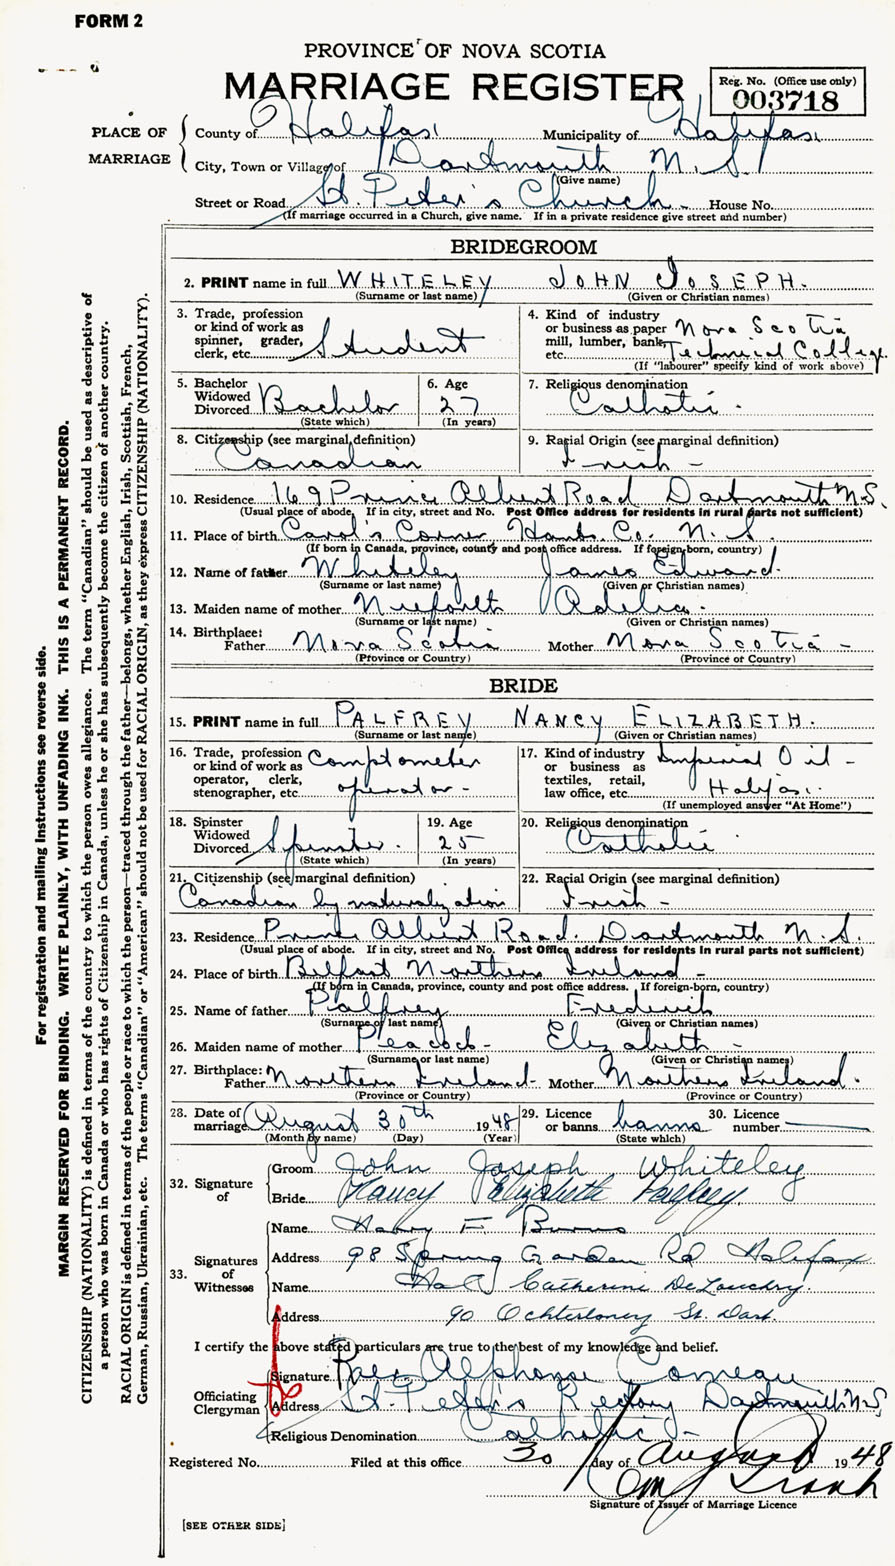 FORM 2
PROVINCE OF NOVA SCOTIA
MARRIAGE REGISTER
Reg. No. (Office use only)
003718
PLACE OF MARRIAGE
County of Halifax Municipality of Halifax
City, Town or Village of Dartmouth N. S.
(Give name)
Street or Road St. Peter's Church House No.
(If marriage occurred in a Church, give name. If in a private residence give street and number)
BRIDEGROOM
2. PRINT name in full WHITELEY JOHN JOSEPH.
(Surname or last name) (Given or Christian names)
3. Trade, profession or kind of work as spinner, grader, clerk, etc. Student
4. Kind of industry or business as paper mill, lumber, bank, etc. Nova Scotia Technical College.
(If "labourer" specify kind of work above)
5. Bachelor Widowed Divorced Bachelor
(State which)
6. Age 27
(In years)
7. Religious denomination Catholic.
8. Citizenship (see marginal definition) Canadian
9. Racial Origin (see marginal definition) Irish -
10. Residence 169 Prince Albert Road Dartmouth N.S.
(Usual place of abode. If in city, street and No. Post Office address for residents in rural parts not sufficient)
11. Place of birth Corner Hants. Co. N. S.
(If born in Canada, province, county and post office address. If foreign born, country)
12. Name of father Whiteley James Edward.
(Surname or last name) (Given or Christian names)
13. Maiden name of mother Adelia.
(Surname or last name) (Given or Christian names)
14. Birthplace: Father Nova Scotia Mother Nova Scotia -
(Province or Country) (Province or Country)
BRIDE
15. PRINT name in full PALFREY NANCY ELIZABETH.
(Surname or last name) (Given or Christian names)
16. Trade, profession or kind of work as operator, clerk, stenographer, etc. Comptometer operator -
17. Kind of industry or business as textiles, retail, law office, etc. Imperial Oil - Halifax.
(If unemployed answer "At Home")
18. Spinster Widowed Divorced Spinster.
(State which)
19. Age 25
(In years)
20. Religious denomination Catholic
21. Citizenship (see marginal definition) Canadian by naturalization
22. Racial Origin (see marginal definition) Irish -
23. Residence Prince Albert Road. Dartmouth N. S.
(Usual place of abode. If in city, street and No. Post Office address for residents in rural parts not sufficient)
24. Place of birth Belfast Northern Ireland -
(If born in Canada, province, county and post office address. If foreign-born, country)
25. Name of father Palfrey Frederick
(Surname or last name) (Given or Christian names)
26. Maiden name of mother Peacock - Elizabeth -
(Surname or last name) (Given or Christian names)
27. Birthplace: Father Northern Ireland - Mother Northern Ireland.
(Province or Country) (Province or Country)
28. Date of marriage August 30th 1948 29. Licence or banns banns 30. Licence number
(Month by name) (Day) (Year) (State which)
32. Signature of
Groom John Joseph Whiteley
Bride Nancy Elizabeth Palfrey.
33. Signatures of Witnesses
Name Harry F. Burns
Address 98 Spring Garden Rd Halifax
Name Catherine
Address 90 Ochterloney St. Dart.
I certify the above stated particulars are true to the best of my knowledge and belief.
Officiating Clergyman
Signature Rev. Alphonse Comeau
Address St. Peter's Rectory Dartmouth N.S.
Religious Denomination Catholic -
Registered No. Filed at this office 30 day of August 1948
Signature of Issuer of Marriage Licence
[SEE OTHER SIDE]
For registration and mailing instructions see reverse side.
MARGIN RESERVED FOR BINDING. WRITE PLAINLY, WITH UNFADING INK. THIS IS A PERMANENT RECORD.
CITIZENSHIP (NATIONALITY) is defined in terms of the country to which the person owes allegiance. The term "Canadian" should be used as descriptive of
a person who was born in Canada or who has rights of Citizenship in Canada, unless he or she has subsequently become the citizen of another country.
RACIAL ORIGIN is defined in terms of the people or race to which the person—traced through the father—belongs, whether English, Irish, Scottish, French,
German, Russian, Ukrainian, etc. The terms "Canadian" or "American" should not be used for RACIAL ORIGIN, as they express CITIZENSHIP (NATIONALITY).